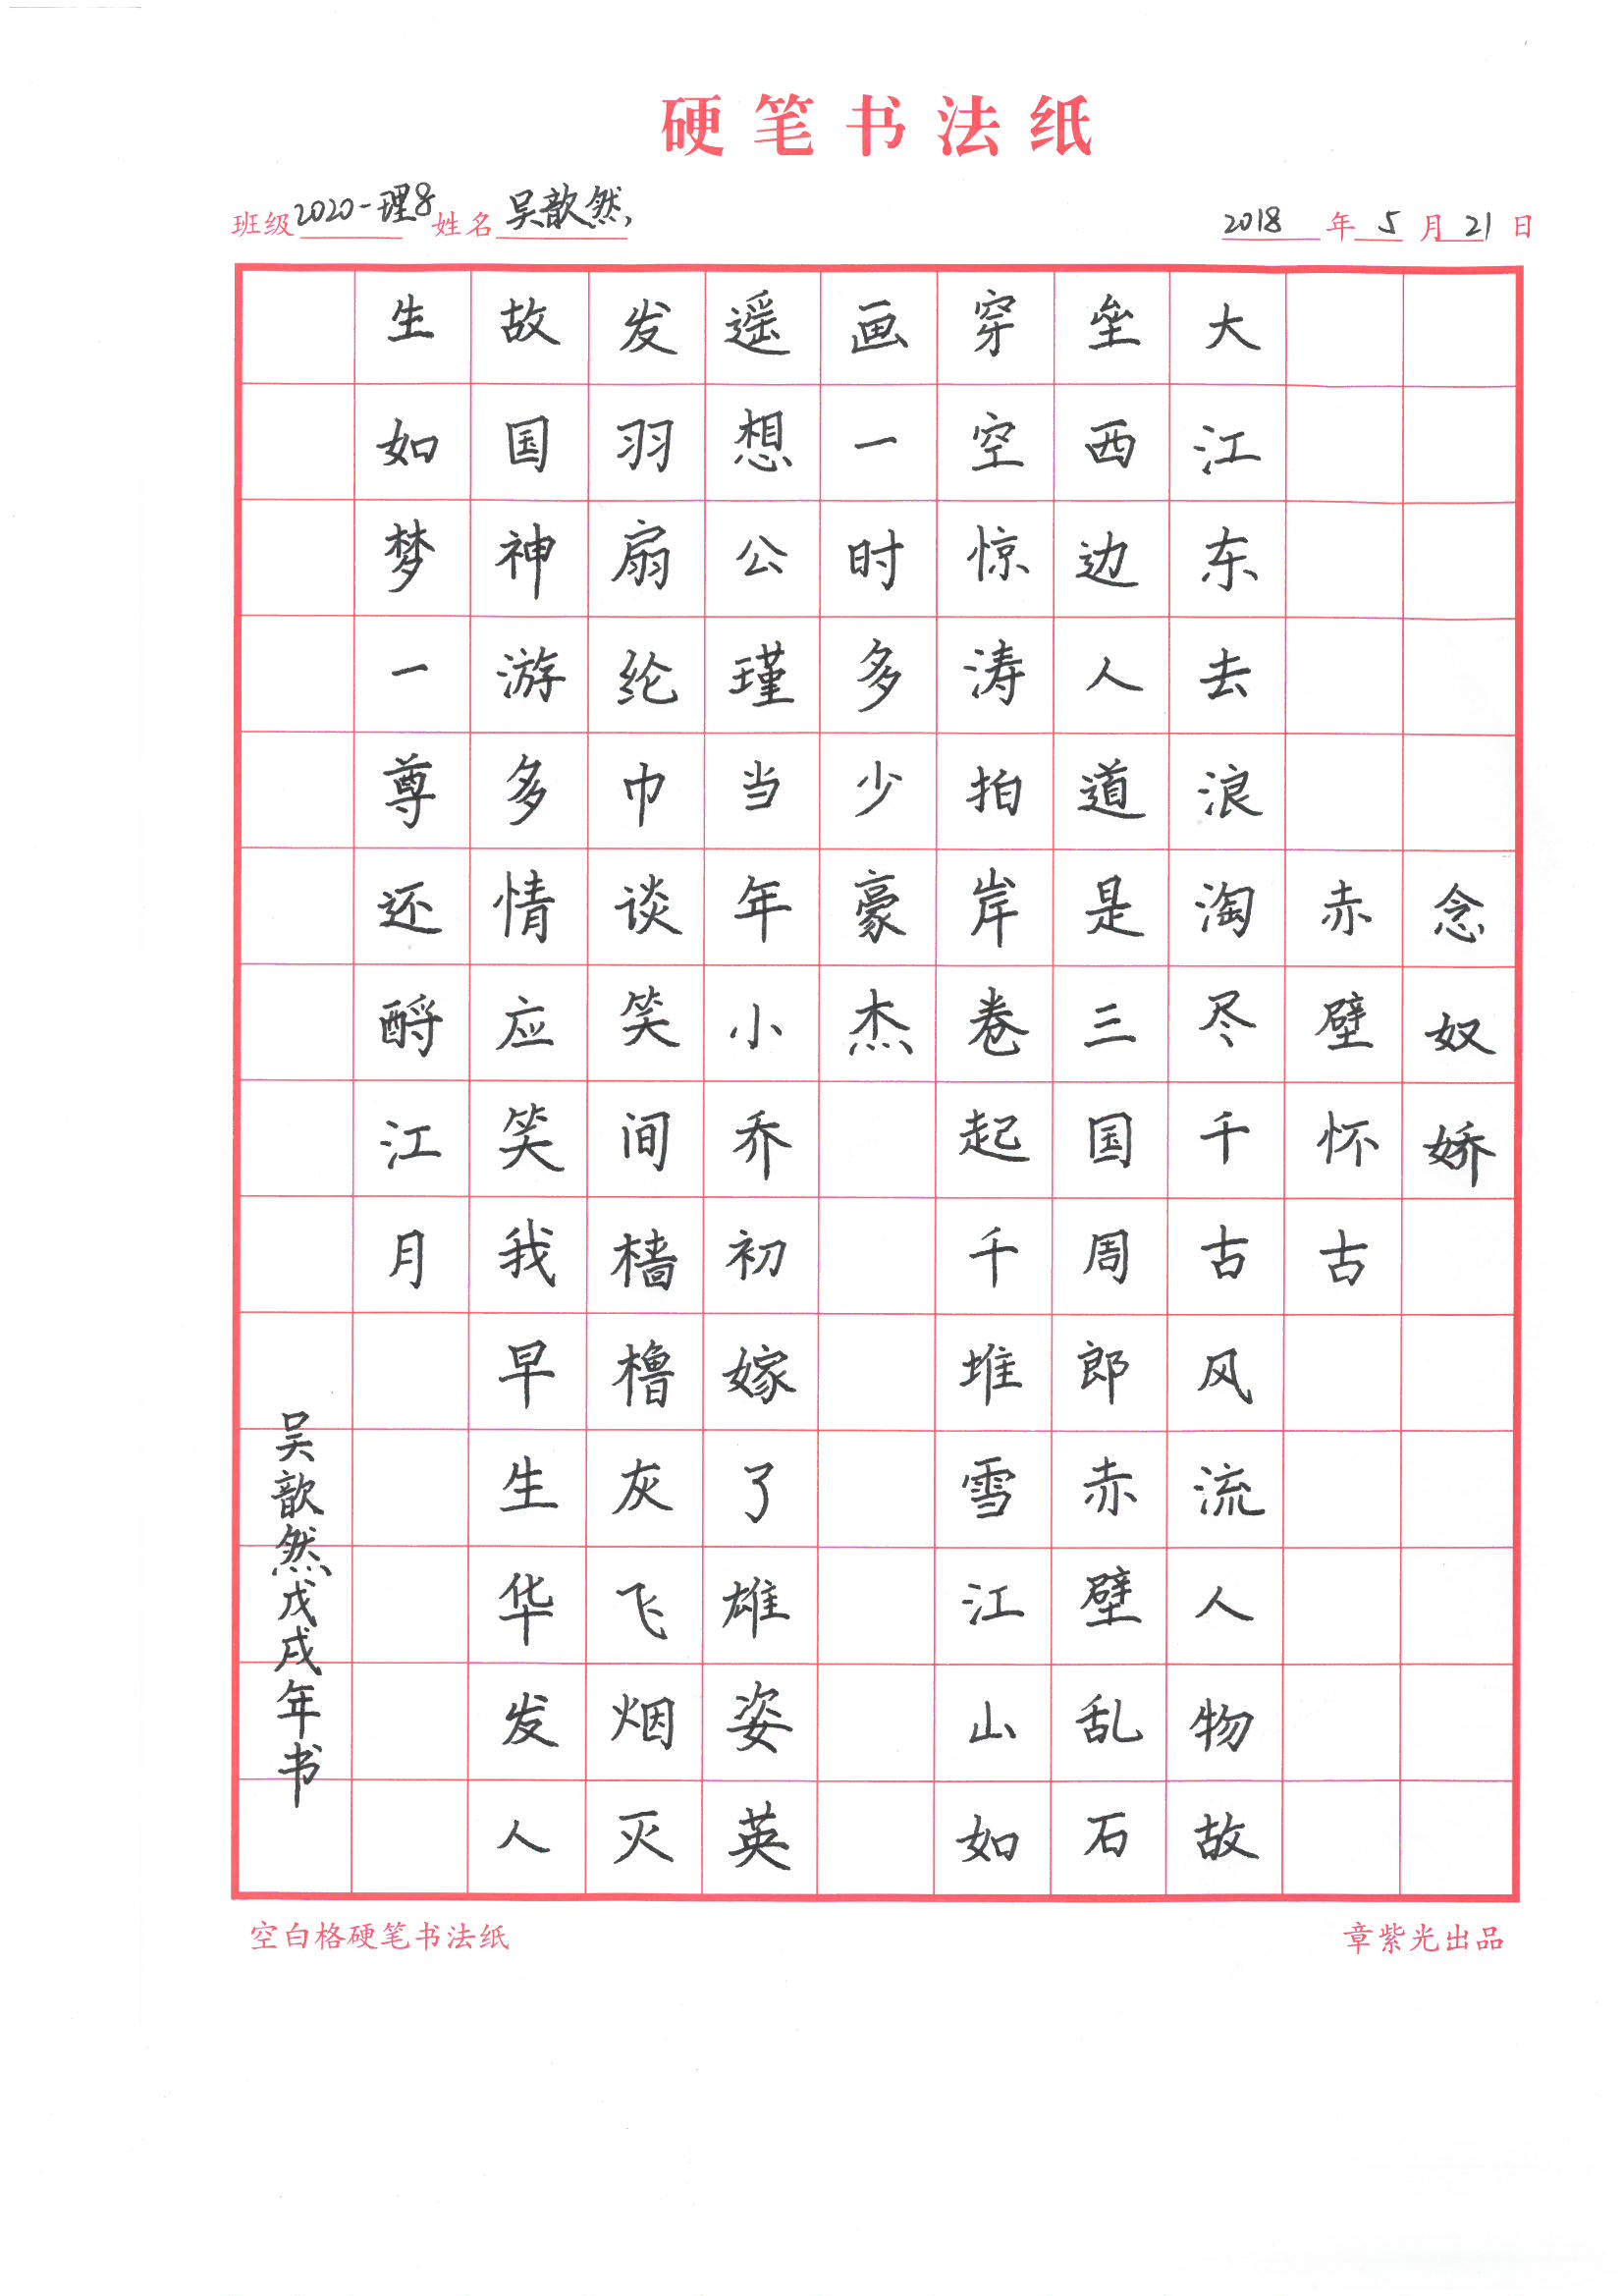 硬笔书法纸
班级 2020-理8 姓名 吴歆然 2018 年 5 月 21 日
念奴娇
赤壁怀古
大江东去浪淘尽千古风流人物故
垒西边人道是三国周郎赤壁乱石
穿空惊涛拍岸卷起千堆雪江山如
画一时多少豪杰
遥想公瑾当年小乔初嫁了雄姿英
发羽扇纶巾谈笑间樯橹灰飞烟灭
故国神游多情应笑我早生华发人
生如梦一尊还酹江月
吴歆然戊戌年书
空白格硬笔书法纸 章紫光出品